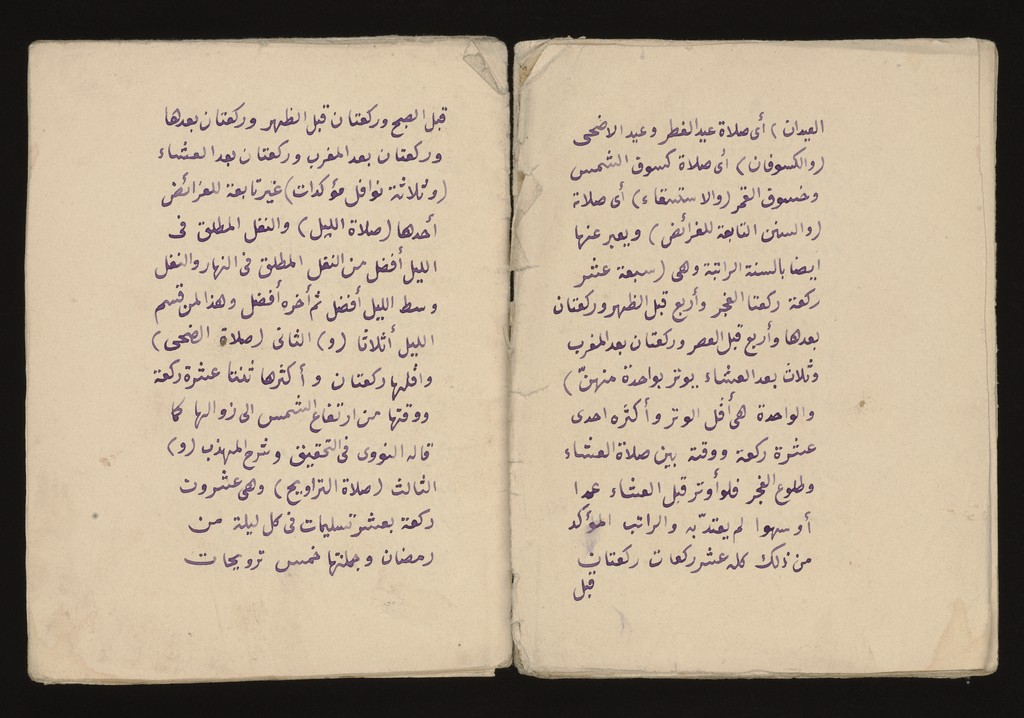 العيدان) أى صلاة عيد الفطر وعيد الاضحى
(والكسوفان) أى صلاة كسوف الشمس
وخسوف القمر (والاستسقاء) أى صلاة
(والسنن التابعة للفرائض) ويعبر عنها
ايضا بالسنة الراتبة وهى (سبعة عشر
ركعة ركعتا الفجر وأربع قبل الظهر وركعتان
بعدها وأربع قبل العصر وركعتان بعد المغرب
وثلاث بعد العشاء يوتر بواحدة منهنّ)
والواحدة هى أقل الوتر وأكثره احدى
عشرة ركعة ووقته بين صلاة العشاء
وطلوع الفجر فلو أوتر قبل العشاء عمدا
أو سهوا لم يعتدّ به والراتب المؤكد
من ذلك كله عشر ركعات ركعتان
قبل
قبل الصبح وركعتان قبل الظهر وركعتان بعدها
وركعتان بعد المغرب وركعتان بعد العشاء
(وثلاثة نوافل مؤكدات) غير تابعة للفرائض
أحدها (صلاة الليل) والنفل المطلق فى
الليل أفضل من النفل المطلق فى النهار والنفل
وسط الليل أفضل ثم أخره أفضل وهذا لمن قسم
الليل أثلاثا (و) الثانى (صلاة الضحى)
واقلها ركعتان وأكثرها ثنتا عشرة ركعة
ووقتها من ارتفاع الشمس الى زوالها كما
قاله النووى فى التحقيق وشرح المهذب (و)
الثالث (صلاة التراويح) وهى عشرون
ركعة بعشر تسليمات فى كل ليلة من
رمضان وجملتها خمس ترويحات